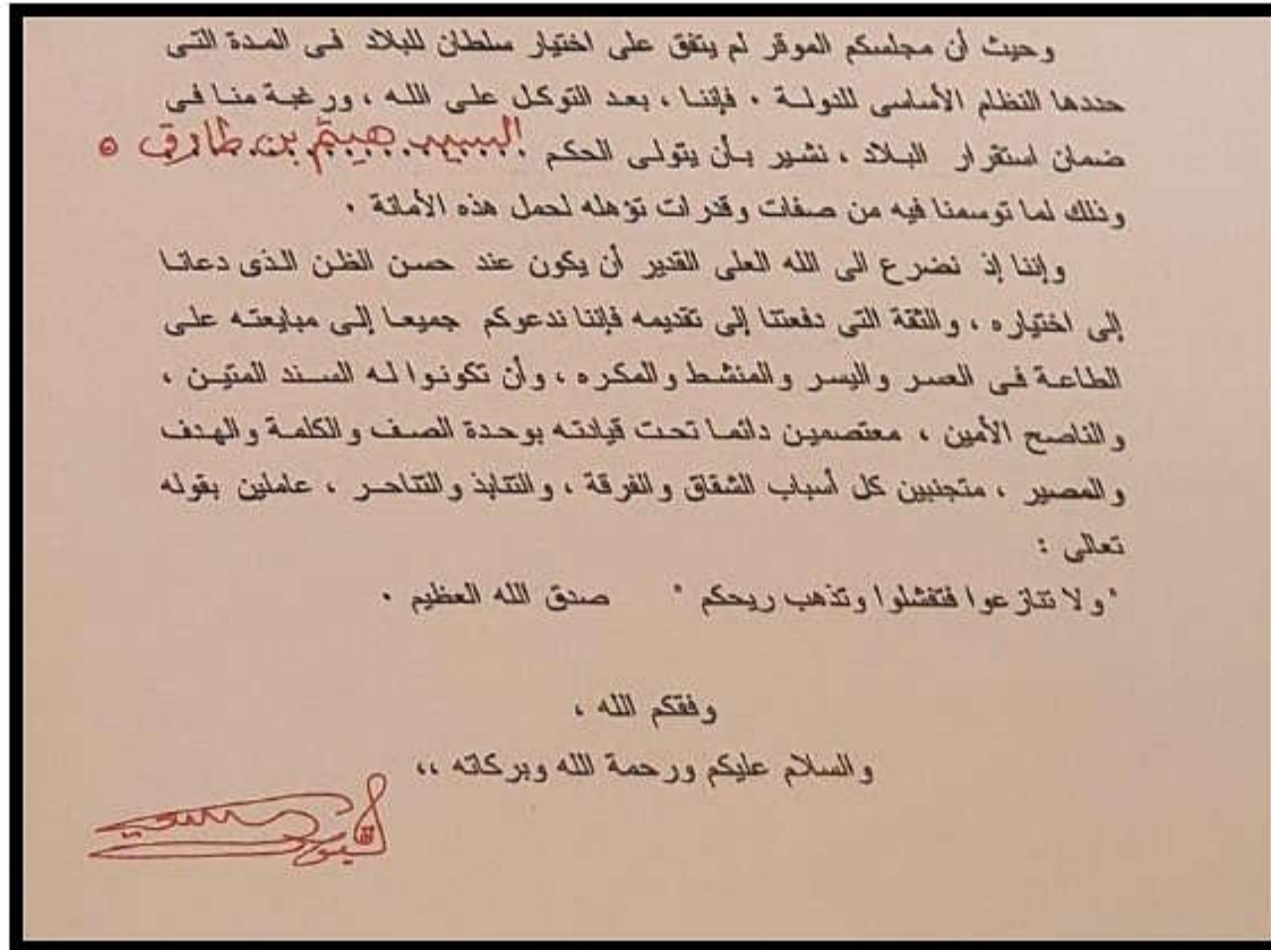 وحيث أن مجلسكم الموقر لم يتفق على اختيار سلطان للبلاد فى المدة التى
حددها النظام الأساسى للدولة . فإننا ، بعد التوكل على الله ، ورغبة منا فى
ضمان استقرار البلاد ، نشير بأن يتولى الحكم السيد هيثم بن طارق
وذلك لما توسمنا فيه من صفات وقدرات تؤهله لحمل هذه الأمانة .
وإننا إذ نضرع الى الله العلى القدير أن يكون عند حسن الظن الذى دعانا
إلى اختياره ، والثقة التى دفعتنا إلى تقديمه فإننا ندعوكم جميعا إلى مبايعته على
الطاعة فى العسر واليسر والمنشط والمكره ، وأن تكونوا له السند المتين ،
والناصح الأمين ، معتصمين دائما تحت قيادته بوحدة الصف والكلمة والهدف
والمصير ، متجنبين كل أسباب الشقاق والفرقة ، والتنابذ والتناحر ، عاملين بقوله
تعالى :
"ولا تنازعوا فتفشلوا وتذهب ريحكم " صدق الله العظيم .
وفقكم الله ،
والسلام عليكم ورحمة الله وبركاته ،،